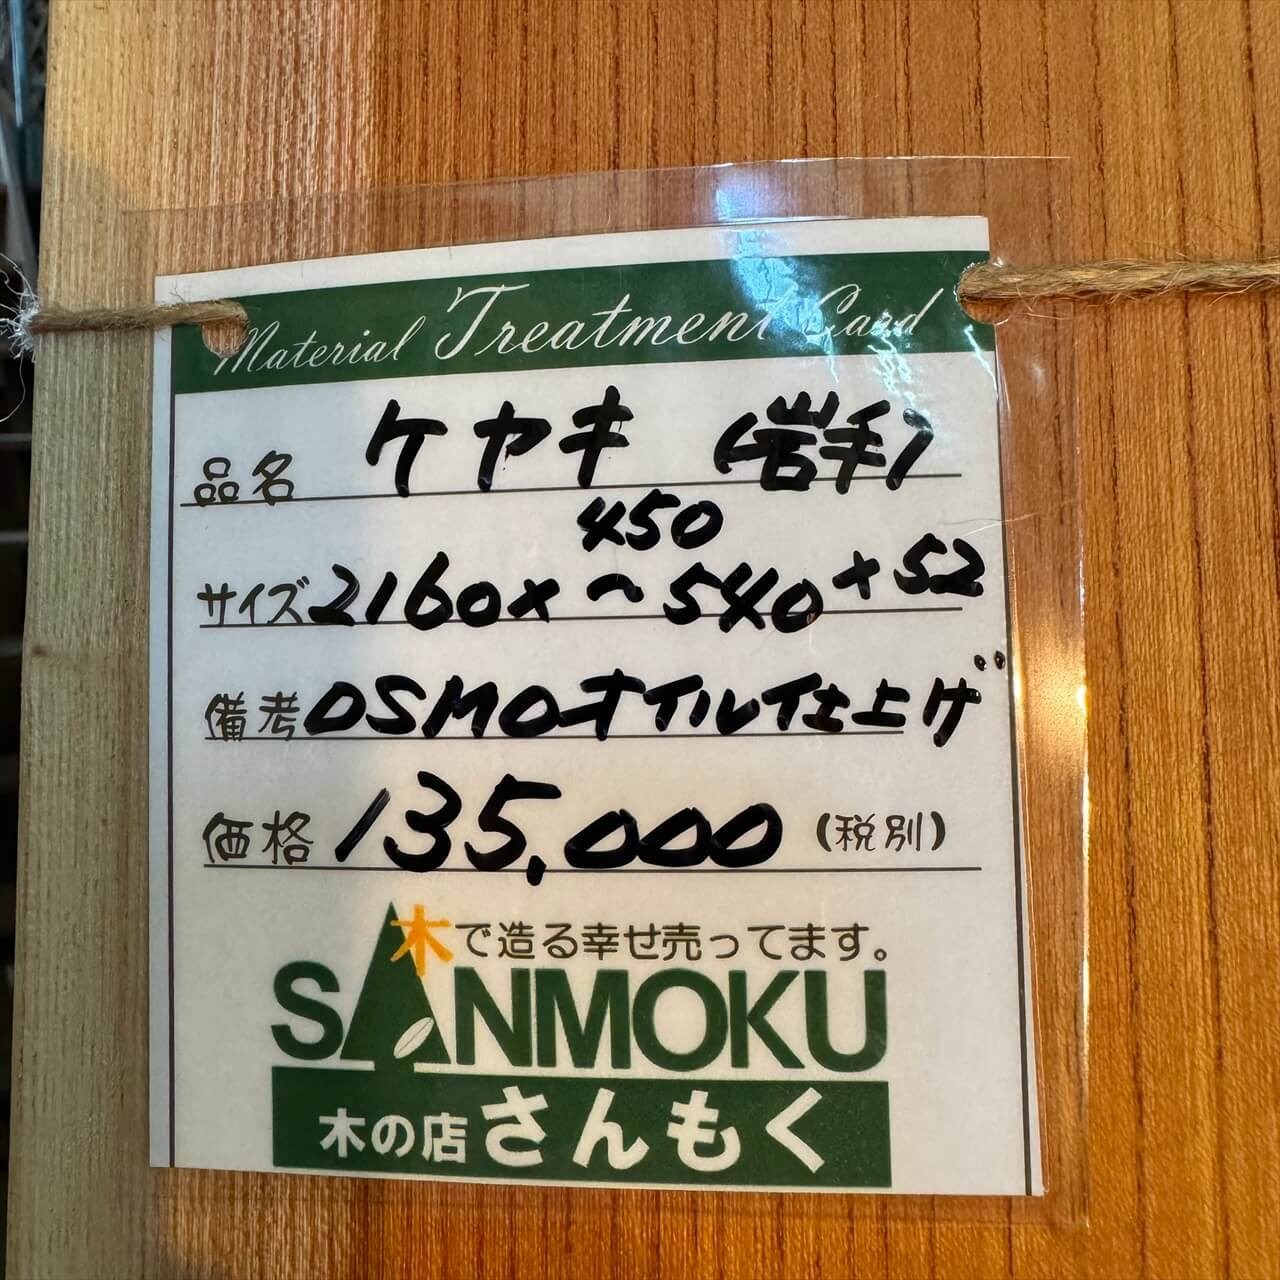 Material Treatment Card
品名 ケヤキ (岩手)
450
サイズ 2160× 〜540 ×52
備考 OSMOオイル仕上げ
価格 135,000 (税別)
木で造る幸せ売ってます。
SANMOKU
木の店さんもく